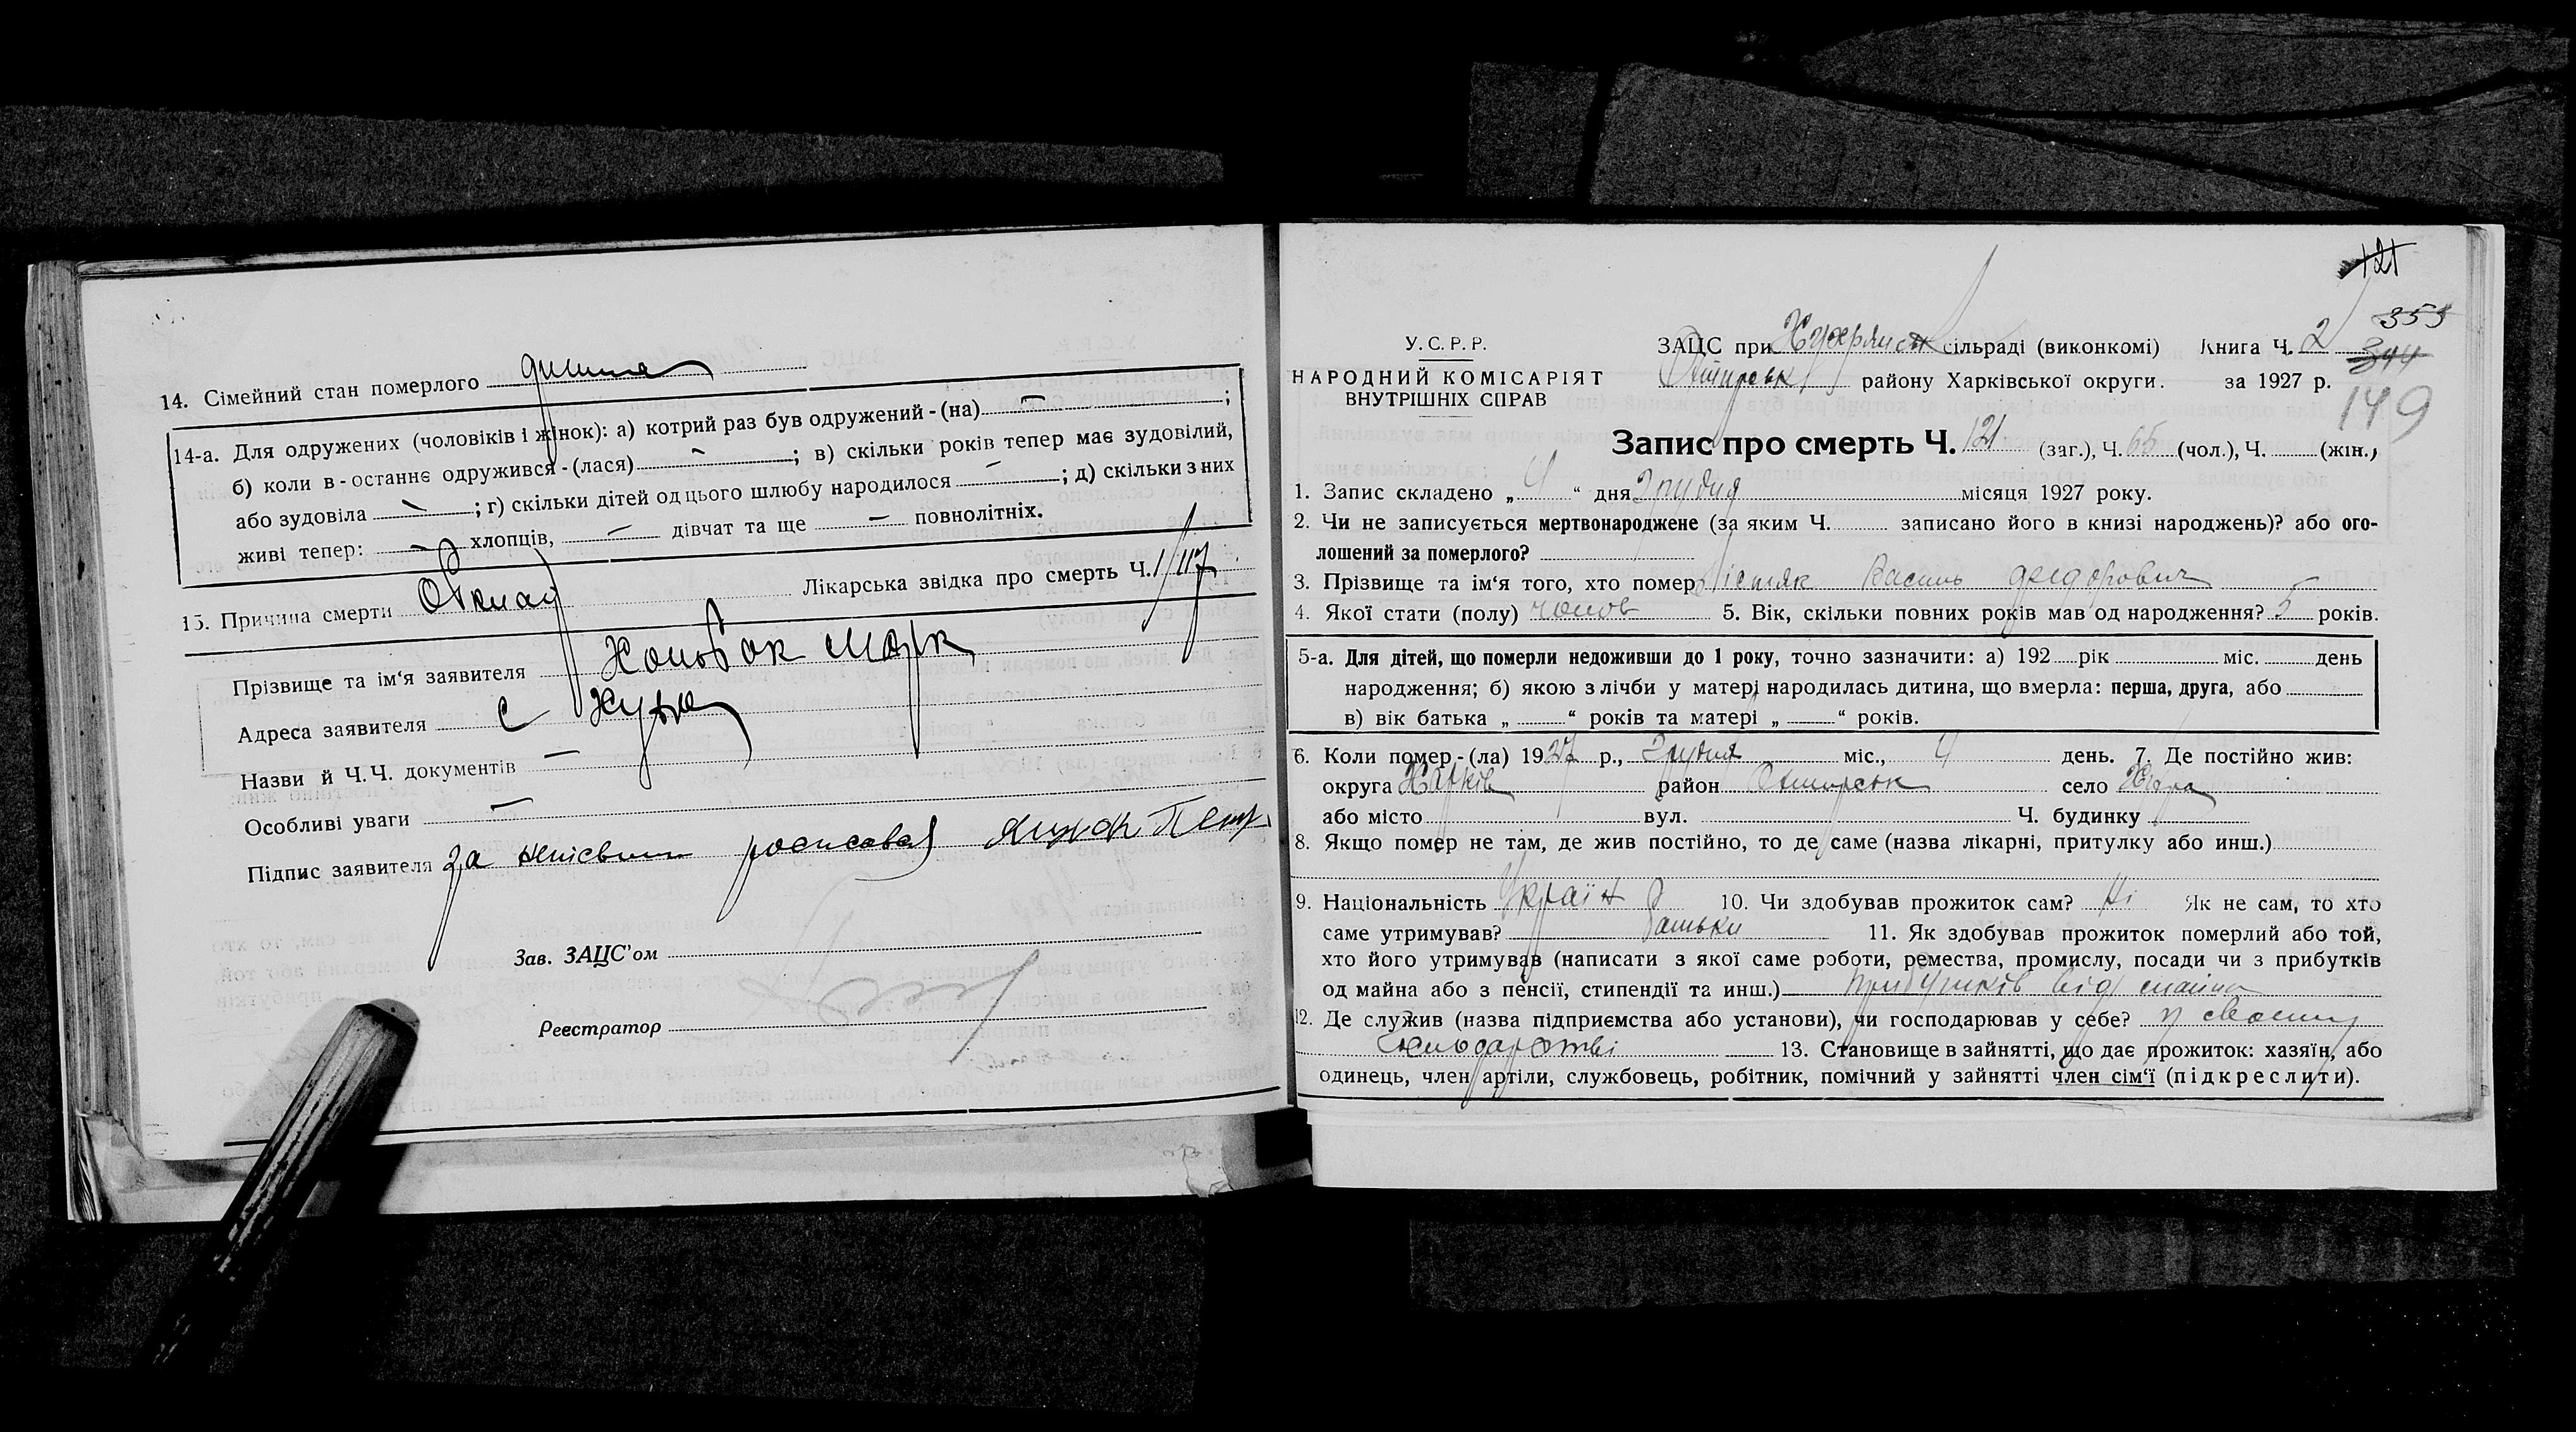 14. Сімейний стан померлого дитина
14-а. Для одружених (чоловіків і жінок): а) котрий раз був одружений - (на) — ;
б) коли в-останнє одружився - (лася) — ; в) скільки років тепер має зудовілий,
або зудовіла — ; г) скільки дітей од цього шлюбу народилося — ; д) скільки з них
живі тепер: — хлопців, — дівчат та ще — повнолітніх.
15. Причина смерти Лікарська звідка про смерть Ч. 1/117
Прізвище та ім'я заявителя Марк
Адреса заявителя с
Назви й Ч.Ч. документів —
Особливі уваги —
Підпис заявителя за росписався
Зав. ЗАЦС'ом
Реєстратор
121
У.С.Р.Р.
НАРОДНИЙ КОМІСАРІЯТ
ВНУТРІШНІХ СПРАВ
ЗАЦС при сільраді (виконкомі) Книга Ч. 2 353
району Харківської округи. за 1927 р. 344
149
Запис про смерть Ч. 121 (заг.), Ч. 65 (чол.), Ч. (жін.)
1. Запис складено „ 4 “ дня Грудня місяця 1927 року.
2. Чи не записується мертвонароджене (за яким Ч. записано його в книзі народжень)? або ого-
лошений за померлого?
3. Прізвище та ім'я того, хто помер Василь Федорович
4. Якої стати (полу) чолов 5. Вік, скільки повних років мав од народження? 5 років.
5-а. Для дітей, що померли недоживши до 1 року, точно зазначити: а) 192 рік міс. день
народження; б) якою з лічби у матері народилась дитина, що вмерла: перша, друга, або
в) вік батька „ “ років та матері „ “ років.
6. Коли помер - (ла) 1927 р., Грудня міс., 4 день. 7. Де постійно жив:
округа Харків район село
або місто вул. Ч. будинку
8. Якщо помер не там, де жив постійно, то де саме (назва лікарні, притулку або инш.)
9. Національність Україн 10. Чи здобував прожиток сам? Ні Як не сам, то хто
саме утримував? батьки 11. Як здобував прожиток померлий або той,
хто його утримував (написати з якої саме роботи, ремества, промислу, посади чи з прибутків
од майна або з пенсії, стипендії та инш.) прибутків від майна
12. Де служив (назва підприємства або установи), чи господарював у себе? у своєму
господарстві 13. Становище в зайнятті, що дає прожиток: хазяїн, або
одинець, член артіли, службовець, робітник, помічний у зайнятті член сім'ї (підкреслити).